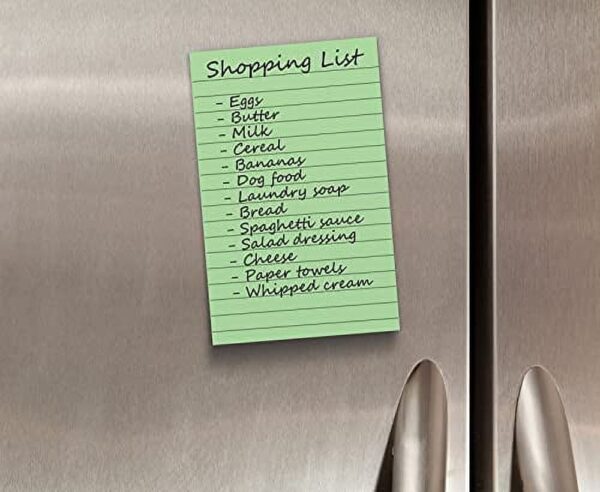 Shopping List
- Eggs
- Butter
- Milk
- Cereal
- Bananas
- Dog food
- Laundry soap
- Bread
- Spaghetti sauce
- Salad dressing
- Cheese
- Paper towels
- Whipped cream